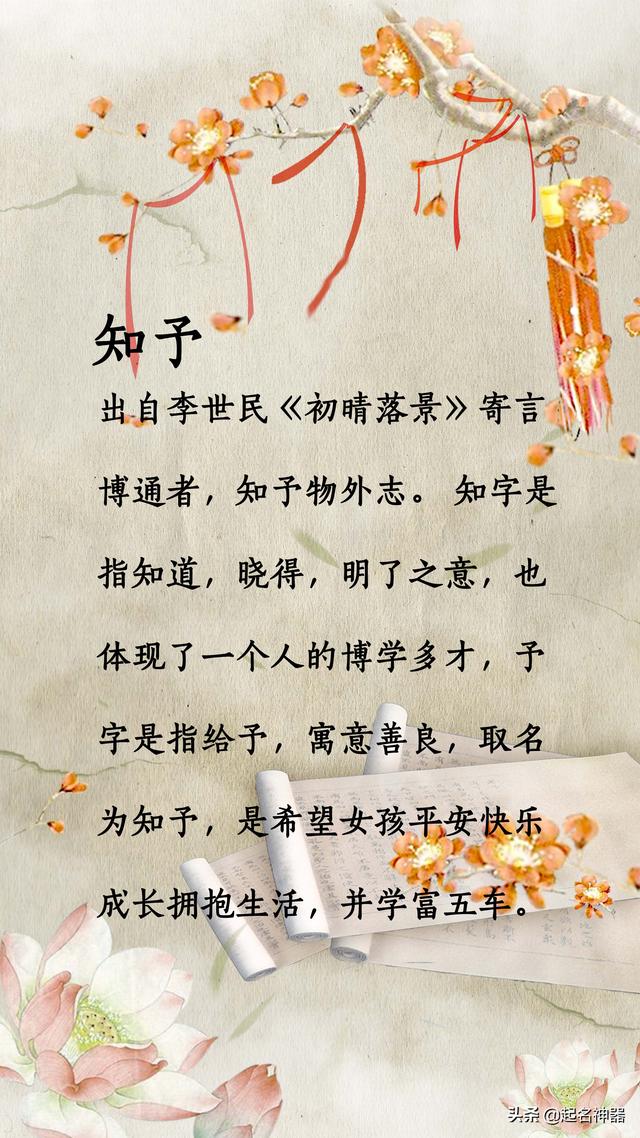 知予
出自李世民《初晴落景》寄言
博通者，知予物外志。 知字是
指知道，晓得，明了之意，也
体现了一个人的博学多才，予
字是指给予，寓意善良，取名
为知予，是希望女孩平安快乐
成长拥抱生活，并学富五车。
头条 @起名神器